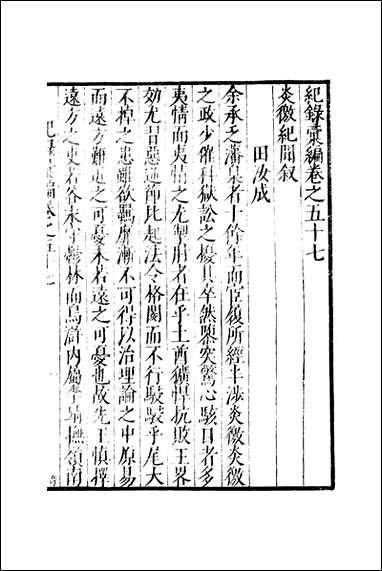 紀錄彙編卷之五十七
炎徼紀聞敘
田汝成
余承乏藩臬者十餘年而宦履所經半涉炎徼炎徼
之政少催科獄訟之擾其卒然隳突驚心駭目者多
夷情而夷情之尤掣肘者在乎土酋獷悍抗敗王界
効尤習惡連師比起法令格閣而不行駸駸乎尾大
不掉之患雖欲羈縻漸不可得以治理論之中原易
而遠方難患之可憂未若遠之可憂也故先王慎擇
遠方之吏若谷永守鬱林而烏滸內屬李勗撫嶺南
紀錄彙編卷之五十七